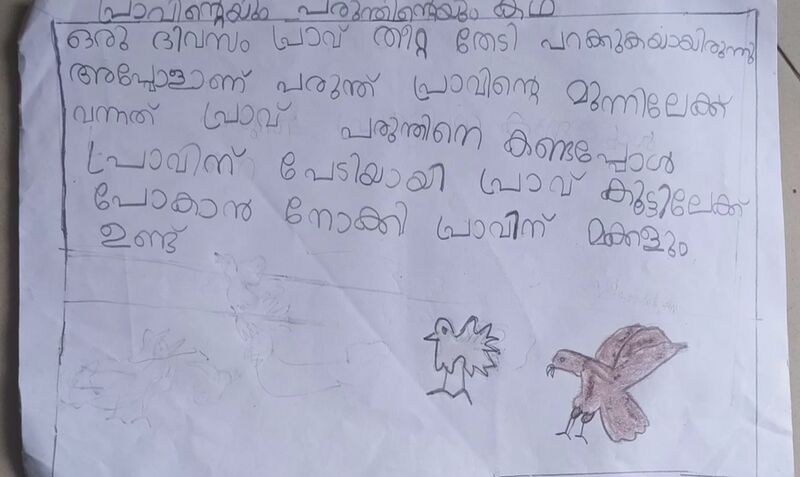 പ്രാവിന്റെയും പരുന്തിന്റെയും കഥ
ഒരു ദിവസം പ്രാവ് തീറ്റ തേടി പറക്കുകയായിരുന്നു
അപ്പോളാണ് പരുന്ത് പ്രാവിന്റെ മുന്നിലേക്ക്
വന്നത് പ്രാവ് പരുന്തിനെ കണ്ടപ്പോൾ
പ്രാവിന് പേടിയായി പ്രാവ് കൂട്ടിലേക്ക്
പോകാൻ നോക്കി പ്രാവിന് മക്കളും
ഉണ്ട്